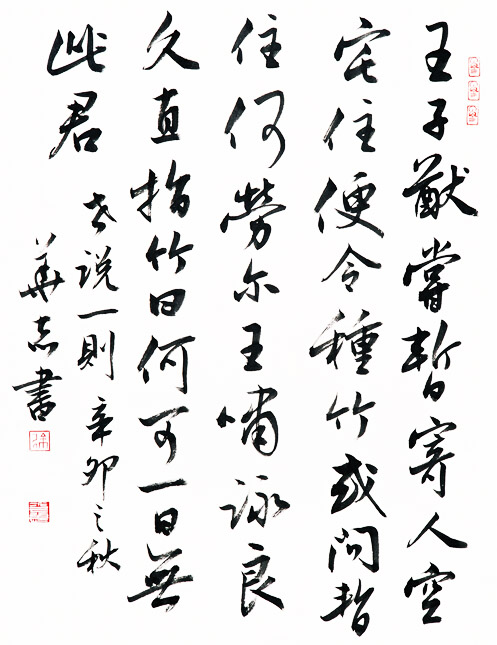 王子猷嘗暫寄人空
宅住便令種竹或问暫
住何勞尔王嘯詠良
久直指竹曰何可一日無
此君
世说一則 辛卯之秋
華志書